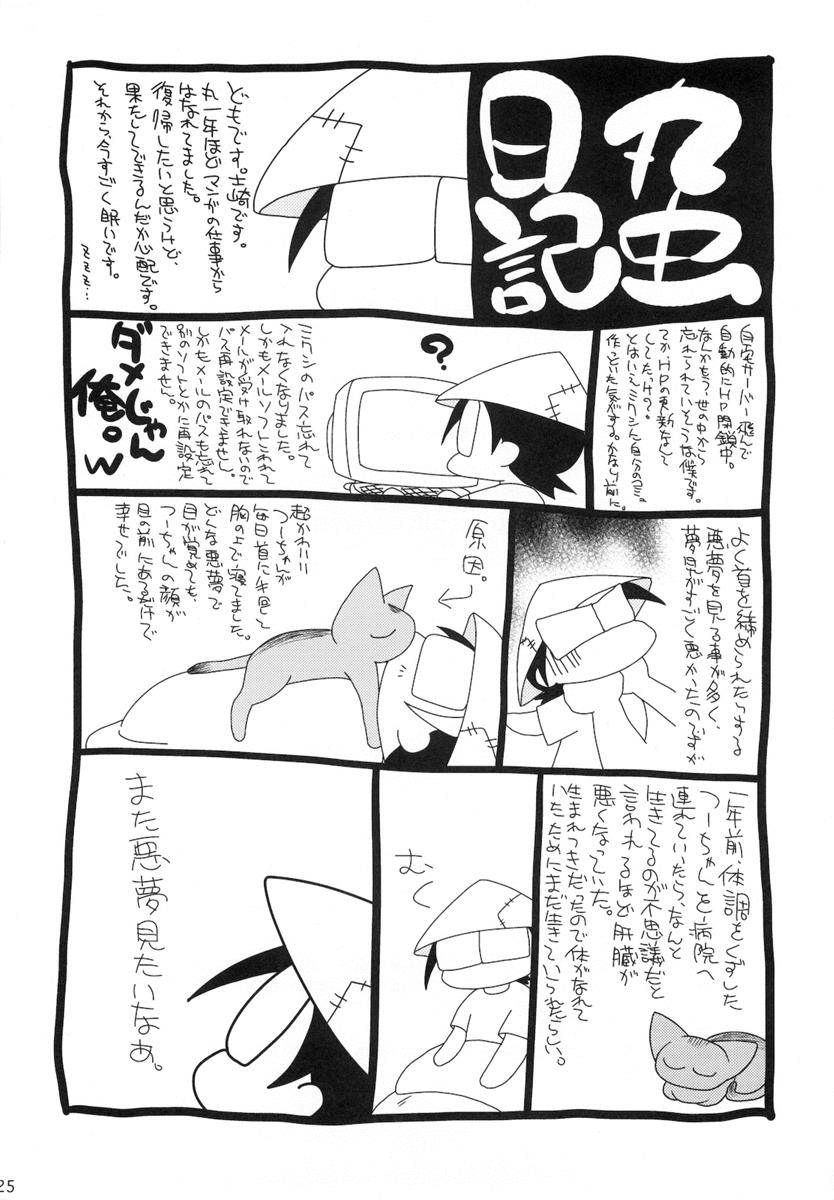 丸虫
日記
どもです。士崎です。
丸一年ほどマンガの仕事から
はなれてました。
復帰したいと思うけど、
果たしてできるんだか心配です。
それから、今すごく眠いです。
自宅サーバー飛んで
自動的にHP閉鎖中。
なんかもう、世の中から
忘れられていそうな僕です。
てか、HPの更新なんて
してたっけ?
とはいえミクシに自分のコミュ
作っていた気がする。かなり前に。
?
ミクシのパス忘れて
入れなくなりました。
しかもメールソフトこわれて
メールが受け取れないので
パス再設定できません。
しかもメールのパスも忘れて
別のソフトとかに再設定
できません。
ダメじゃん
俺。w
よく首を締められたりする
悪夢を見る事が多く、
夢見がすごく悪かったのですが
原因。
超かわいい
つーちゃんが
毎日首に手回して
胸の上で寝てました。
どんな悪夢で
目が覚めても、
つーちゃんの顔が
目の前にあるだけで
幸せでした。
一年前、体調をくずした
つーちゃんを病院へ
連れていったら、なんと
生きてるのが不思議だと
言われるほど肝臓が
悪くなっていた。
生まれつきだったので体がなれて
いたためにまだ生きていられたらしい。
むく
また悪夢見たいなあ。
25